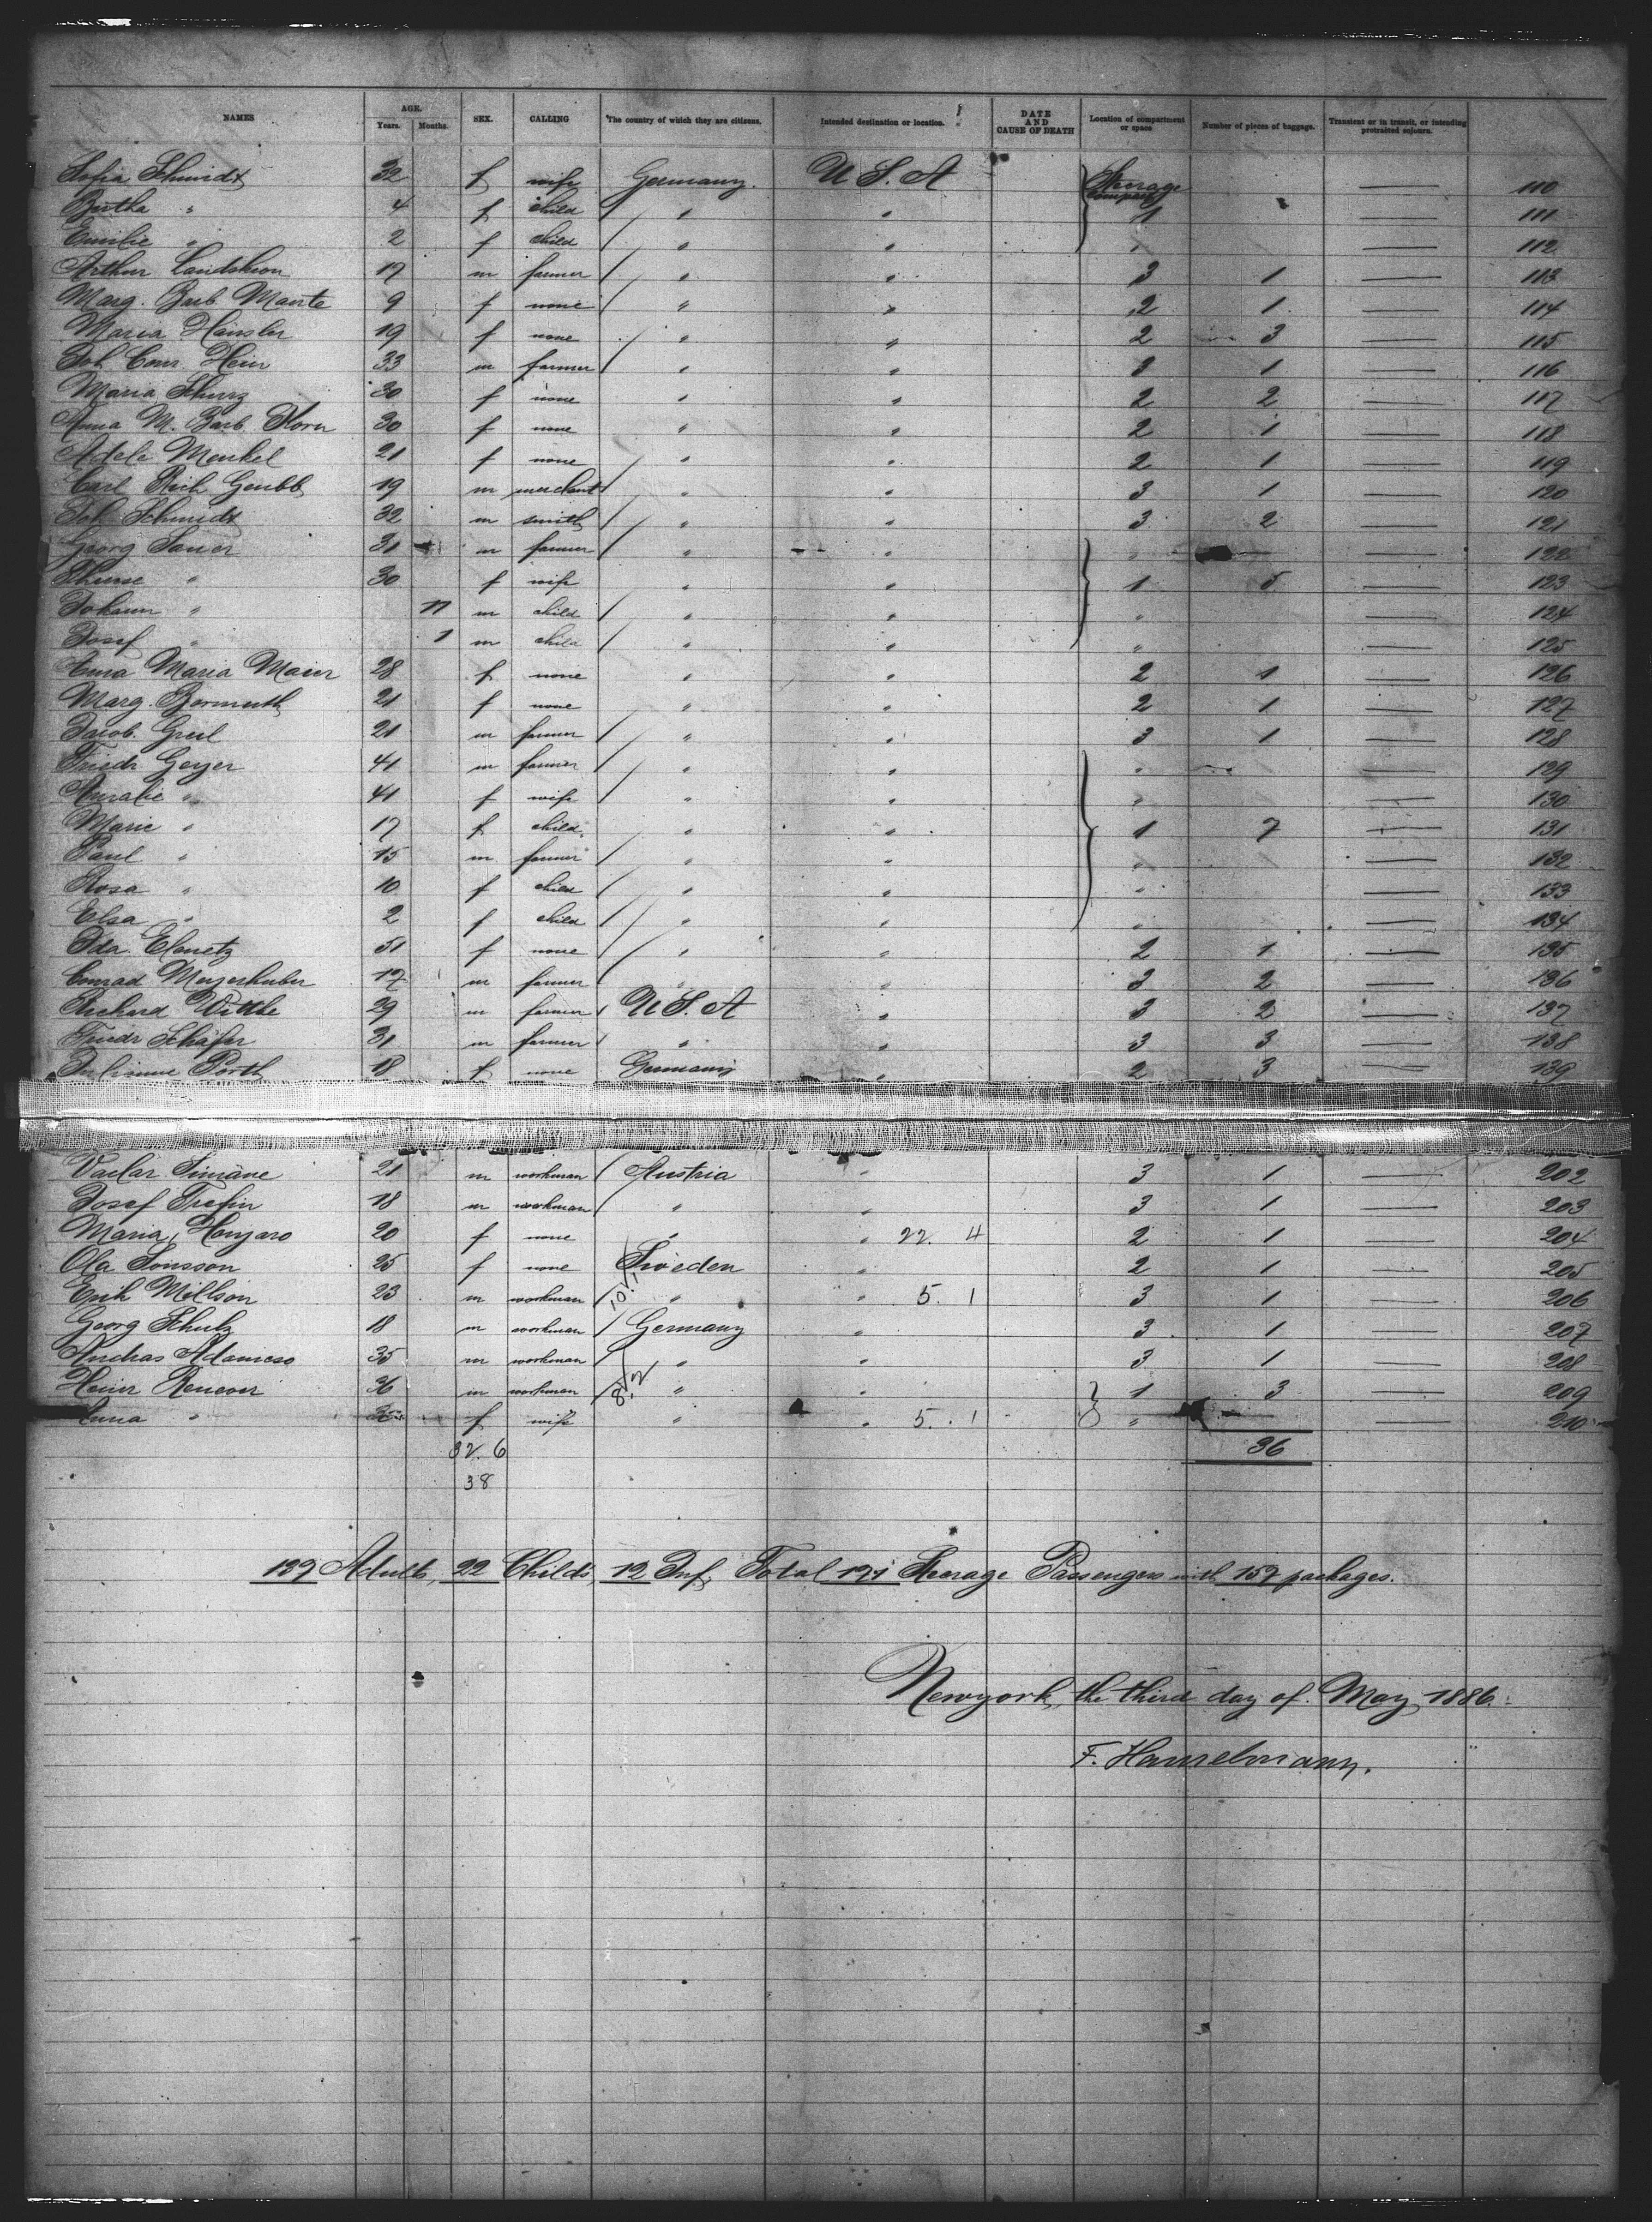 NAMES AGE. Years. Months. SEX. CALLING The country of which they are citizens. Intended destination or location. DATE AND CAUSE OF DEATH Location of compartment or space Number of pieces of baggage. Transient or in transit, or intending protracted sojourn.
Sofia Schmidt 32 f wife Germany. U S. A Steerage — 110
Bertha " 4 f child " " 1 — 111
Emilie " 2 f child " " " — 112
Arthur 17 m farmer " " 3 1 — 113
Marg. Barb. 9 f none " " 2 1 — 114
Maria 19 f none " " 2 3 — 115
Joh. Conr. 33 m farmer " " 3 1 — 116
Maria 30 f none " " 2 2 — 117
Anna M. Barb. Korn 30 f none " " 2 1 — 118
Adele Menkel 21 f none " " 2 1 — 119
Carl Rich. 19 m merchant " " 3 1 — 120
Joh. Schmidt 32 m smith " " 3 2 — 121
Georg Sauer 31 m farmer " " " — 122
" 30 f wife " " 1 5 — 123
Johann " 11 m child " " " — 124
Josef " 1 m child " " " — 125
Anna Maria Maier 28 f none " " 2 1 — 126
Marg. Bormuth 21 f none " " 2 1 — 127
Jacob 21 m farmer " " 3 1 — 128
Friedr. Geyer 41 m farmer " " " — 129
" 41 f wife " " " — 130
Marie " 17 f child " " 1 7 — 131
Paul " 15 m farmer " " " — 132
Rosa " 10 f child " " " — 133
Elsa " 2 f child " " " — 134
Ida 51 f none " " 2 1 — 135
Conrad Meyerhuber 17 m farmer " " 3 2 — 136
Richard Witthe 29 m farmer U S. A " 3 2 — 137
Friedr Schäfer 31 m farmer " " 3 3 — 138
Julianne Porth 18 f none Germany " 2 3 — 139
Vaclar 21 m workman Austria " 3 1 — 202
Josef 18 m workman " " 3 1 — 203
Maria 20 f none " " 22. 4 2 1 — 204
Ola Sonsson 25 f none Sweden " 2 1 — 205
Erik Millson 23 m workman 10.1 " " 5. 1 3 1 — 206
Georg Schulz 18 m workman Germany " 3 1 — 207
35 m workman " " 3 1 — 208
36 m workman 8.2 " " 1 3 — 209
Anna " f wife " " 5. 1 " — 210
32. 6 36
38
Adults, 22 Childs, 12 Inf. Total Steerage Passengers with packages.
Newyork, the third day of May 1886.
F. Hanselmann.